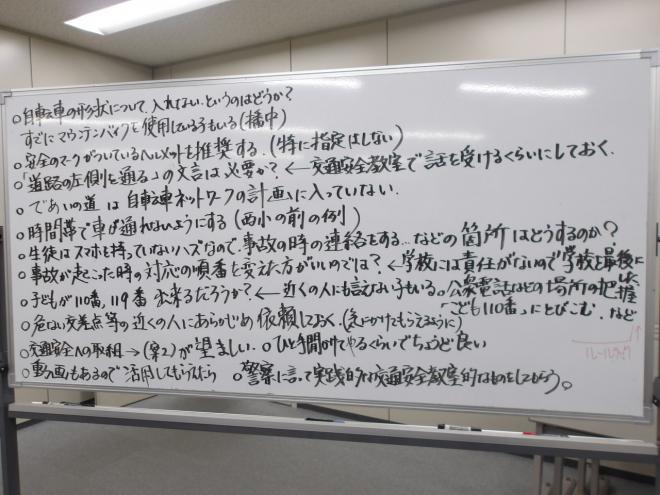 ○自転車の形状について、入れない。というのはどうか?
すでにマウンテンバイクを使用している子もいる(橘中)
○安全のマークがついているヘルメットを推奨する。(特に指定はしない)
○「道路の左側を通る」の文言は必要か? ← 交通安全教室で話を受けるくらいにしておく。
○であいの道は自転車ネットワークの計画に入っていない。
○時間帯で車が通れないようにする(西小の前の例)
○生徒はスマホを持っていないハズなので、事故の時の連絡をする…などの箇所はどうするのか?
○事故が起こった時の対応の順番を変えた方がいいのでは? ← 学校には責任がないので学校を最後に
○子どもが110番、119番出来るだろうか? ← 近くの人にも言えない子もいる。公衆電話などの場所の把握
「こども110番」にとびこむ、など
○危ない交差点等の近くの人にあらかじめ依頼しておく。(気にかけてもらうように)
○交通安全への取組→(案2)が望ましい。 ○ひと手間かけてやるくらいでちょうど良い
○動画もあるので活用してもらえたら ○警察に言って実践的な交通安全教室的なものをしてもらう。